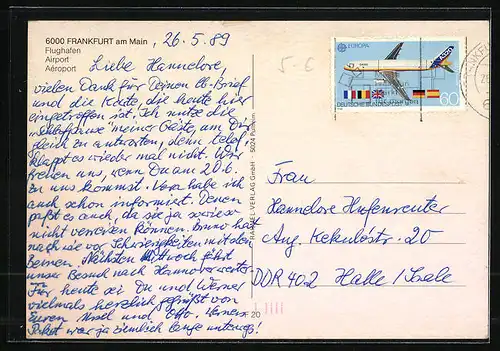 6000 FRANKFURT am Main, 26.5.89
Flughafen
Airport
Aéroport
Liebe Hannelore,
vielen Dank für Deinen lb. Brief
und die Karte, die heute hier
eingetroffen ist. Ich nutze die
"Schlafpause" meiner Gäste, um Dir
gleich zu antworten, denn telef.
klappt es wieder mal nicht. Wir
freuen uns, wenn Du am 20.6.
zu uns kommst. Vera habe ich
auch schon informiert. Denen
paßt es auch, da sie ja sowieso
nicht verreisen können. Bruno hat
nach wie vor Schwierigkeiten mit den
Beinen. Nächsten Mittwoch fährt
unser Besuch nach Hannover weiter.
Für heute sei Du und Werner
vielmals herzlich gegrüßt von
Euren Ursel und Otto. Werners
Paket war ja ziemlich lange unterwegs!
5024 Pulheim
20
5-6
EUROPA
DEUTSCHE BUNDESPOST
60
Frau
Hannelore Hufenreuter
Aug. Kekuléstr. 20
DDR 402 Halle/Saale